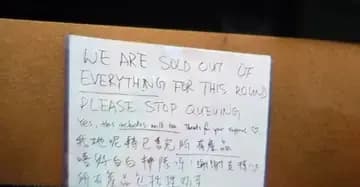 WE ARE SOLD OUT OF
EVERYTHING FOR THIS ROUND
PLEASE STOP QUEUING
Yes, this includes milk tea. Thanks for your support ♡
我地呢轉已售完所有產品
唔好白白排隊呀！謝謝支持
所有產品包括埋奶茶